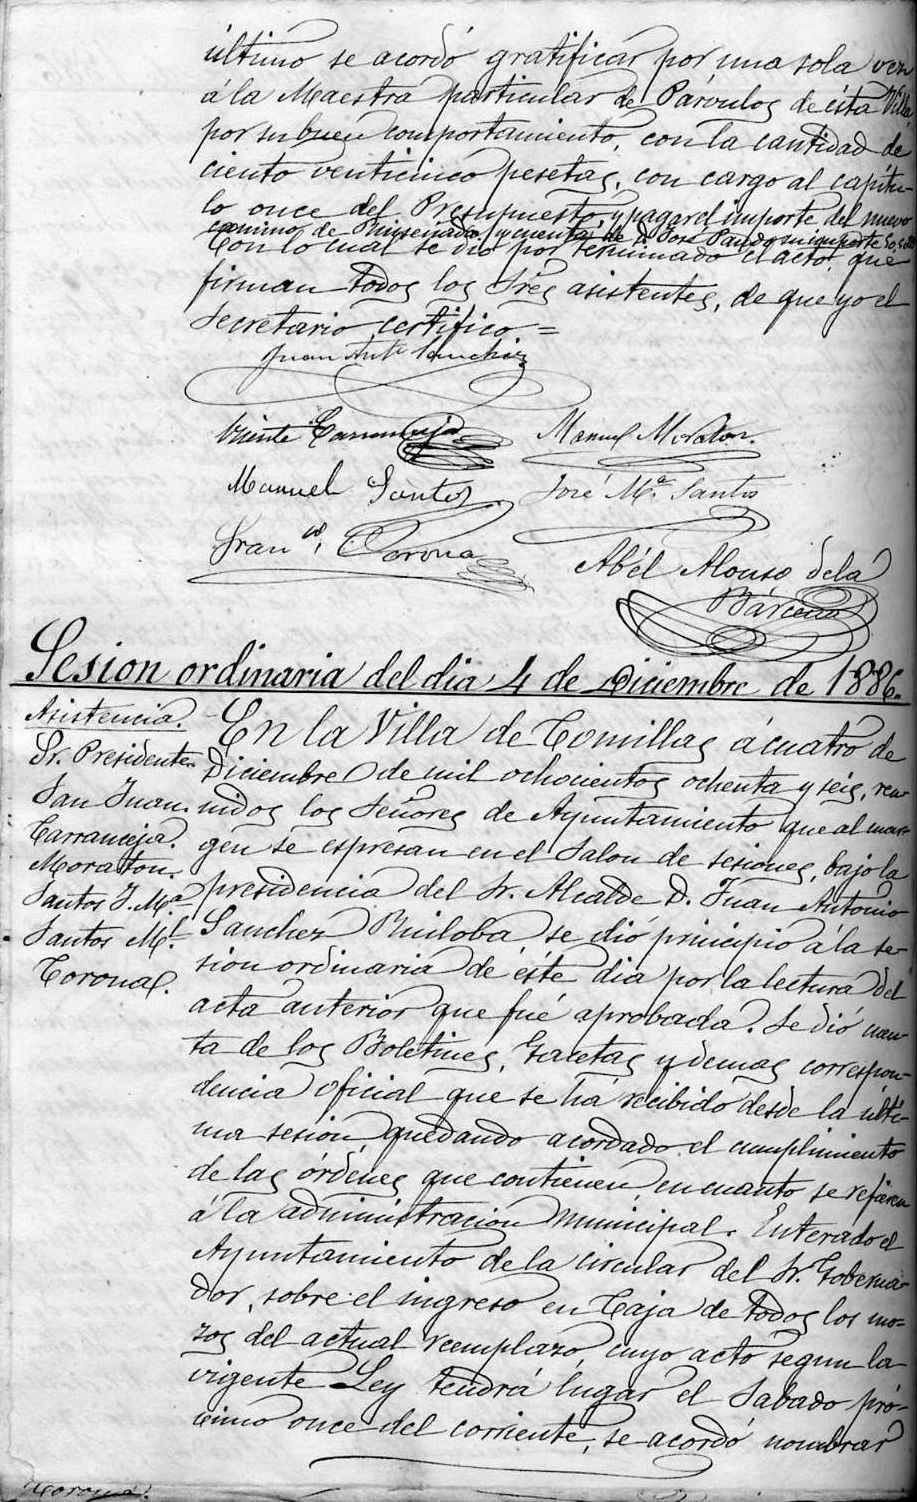 último se acordó gratificar por una sola vez
á la Maestra particular de Párvulos de ésta Villa,
por su buen comportamiento, con la cantidad de
ciento venticinco pesetas, con cargo al capítu-
lo once del Presupuesto, y pagar el importe del nuevo
camino de Ruiseñada, y cuenta de D. José Pando su importe
Con lo cual se dió por terminado el acto, que
firman todos los Sres asistentes, de que yo el
Secretario certifico =
Juan Antº Sanchez
Vicente Carranceja
Manuel Moraton.
Manuel Santos
José M.ª Santos
Franco. Corona
Abél Alonso de la
Bárcena
Sesion ordinaria del dia 4 de Diciembre de 1886.
Asistencia.
Sr. Presidente.
San Juan.
Carranceja.
Moraton.
Santos J. M.ª
Santos M.l
Corona.
En la Villa de Comillas á cuatro de
Diciembre de mil ochocientos ochenta y seis, reu-
nidos los Señores de Ayuntamiento que al mar-
gen se espresan en el Salon de sesiones, bajo la
presidencia del Sr. Alcalde D. Juan Antonio
Sanchez Ruiloba, se dió principio á la se-
sion ordinaria de éste dia por la lectura del
acta anterior que fué aprobada. Se dió cuen-
ta de los Boletines, Gacetas y demas correspon-
dencia oficial que se há recibido desde la últi-
ma sesion quedando acordado el cumplimiento
de las órdenes que contienen en cuanto se refieren
á la administracion municipal. Enterado el
Ayuntamiento de la circular del Sr. Goberna-
dor, sobre el ingreso en Caja de todos los mo-
zos del actual reemplazo cuyo acto segun la
vigente Ley tendrá lugar el Sabado pró-
cimo once del corriente, se acordó nombrar
Corona.